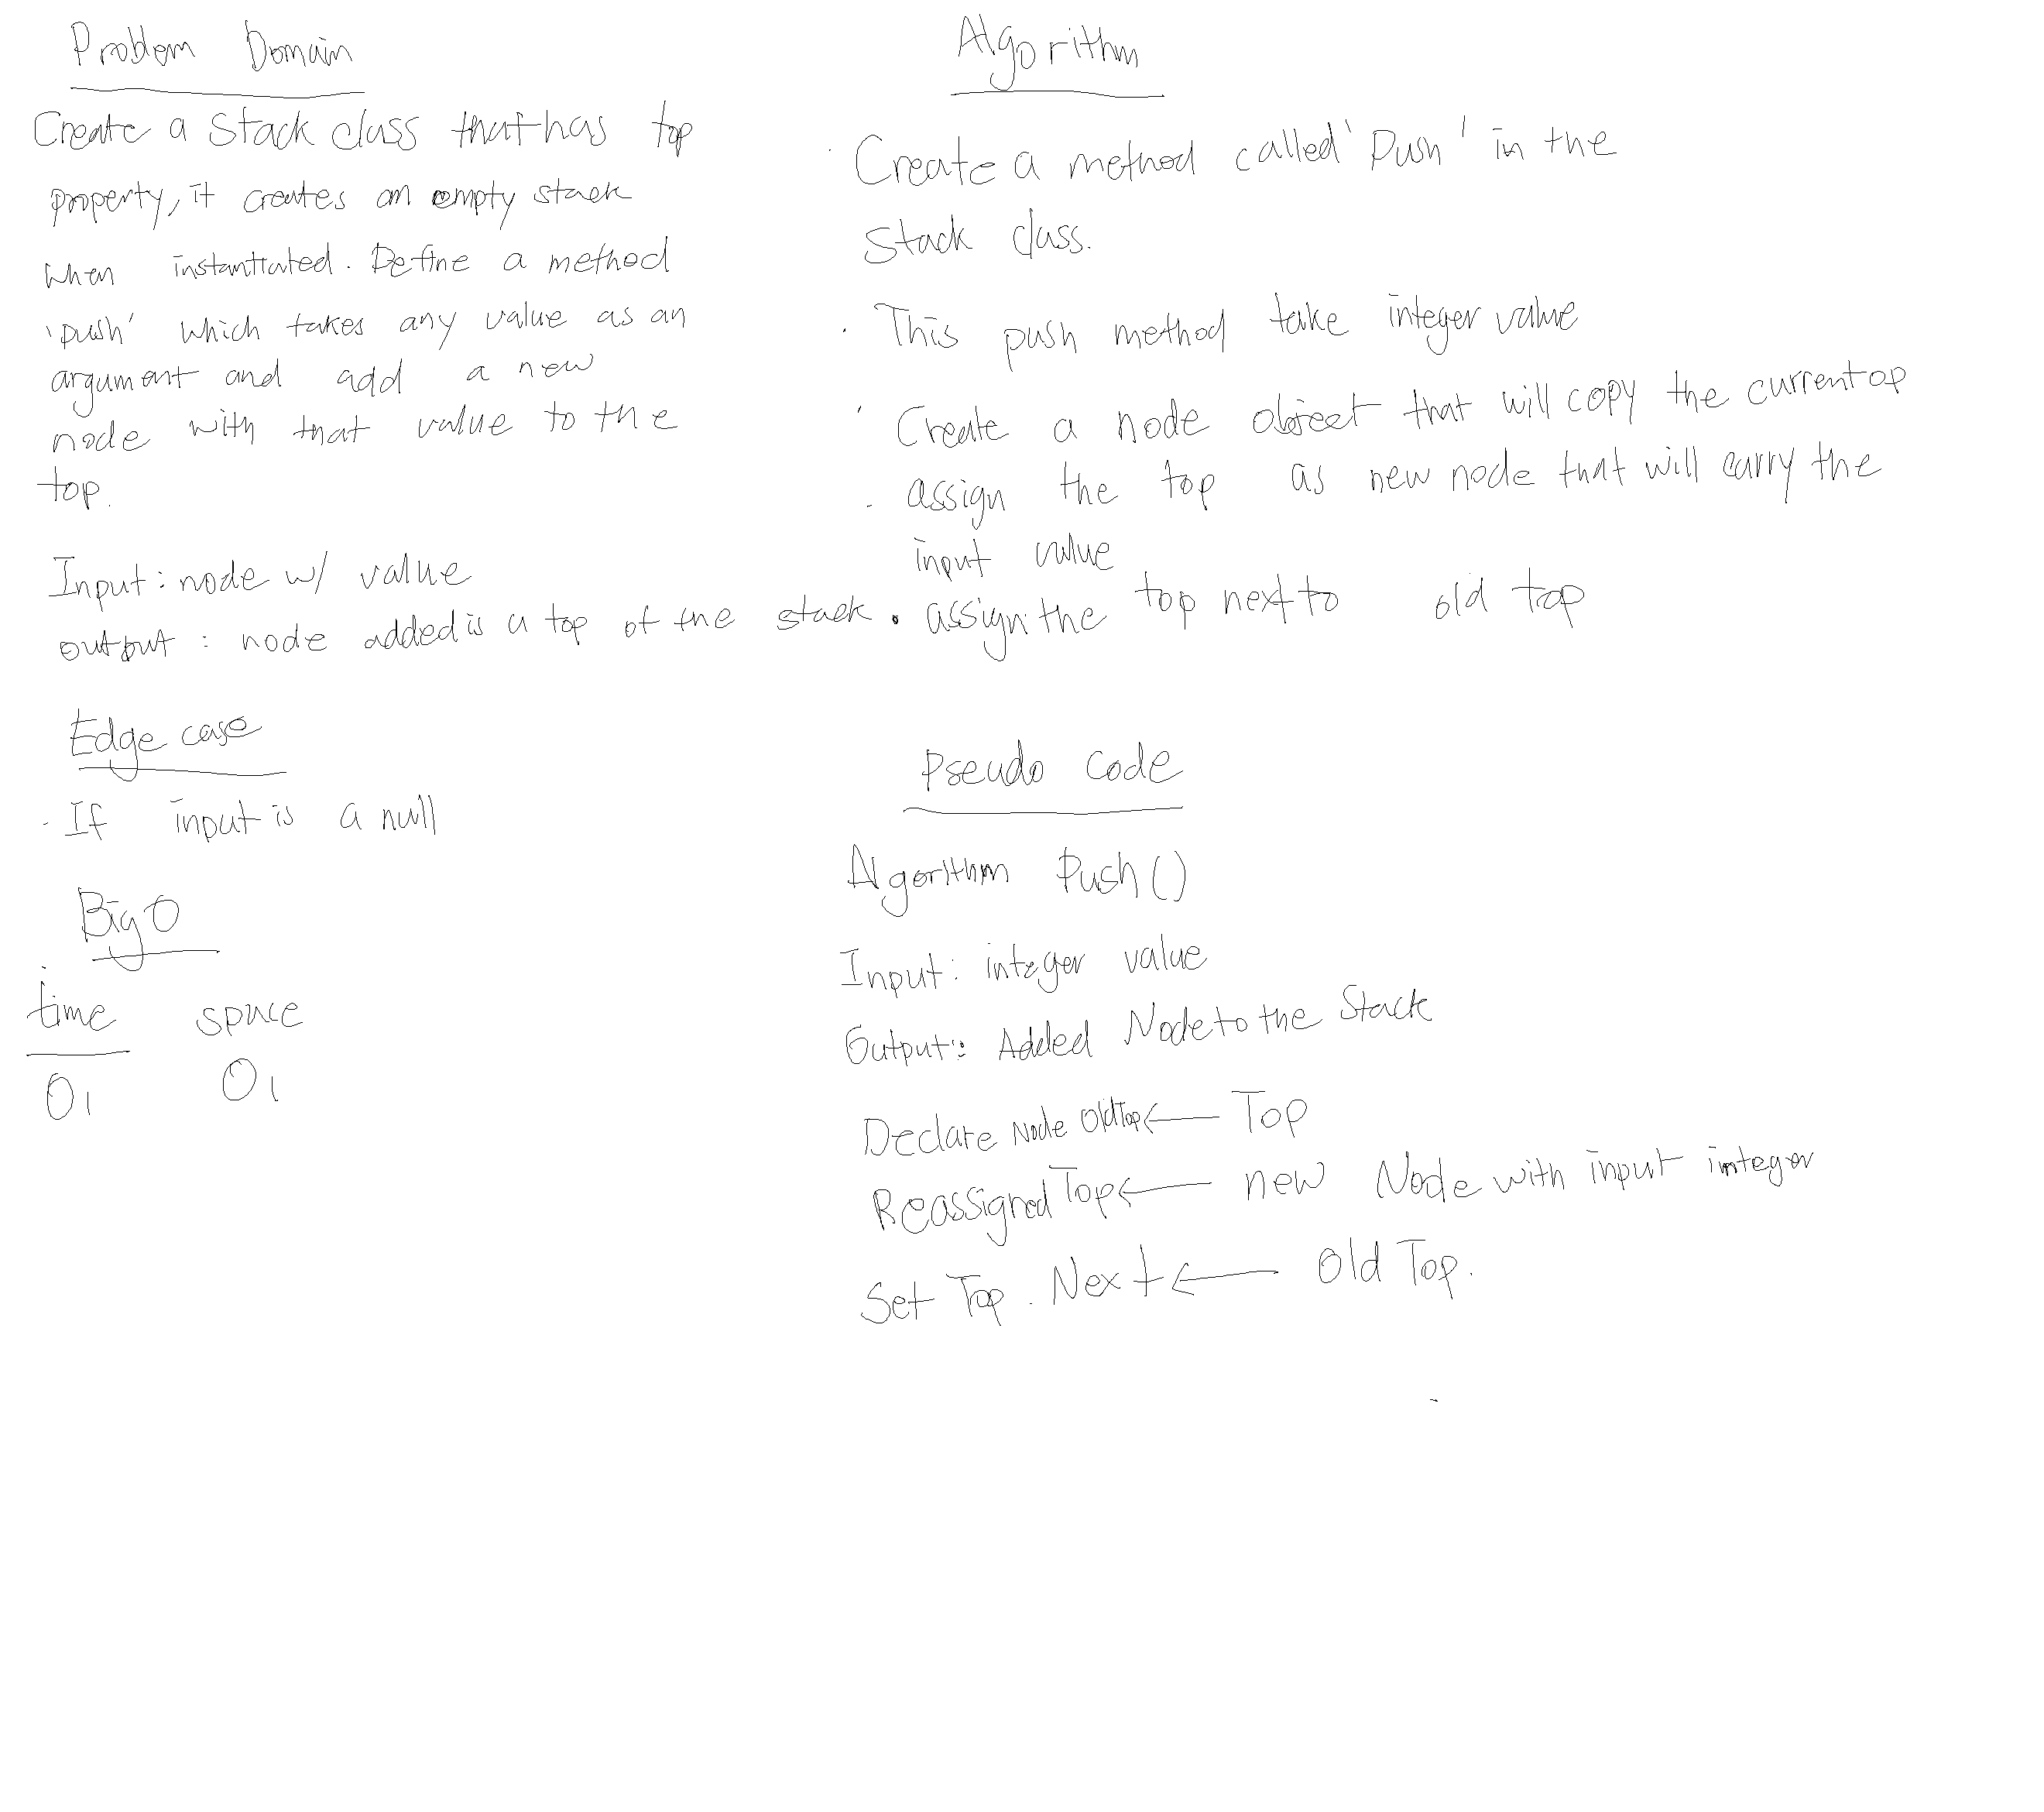 Problem Domain
Create a Stack class that has top
property, it creates an empty stack
when instantiated. Define a method
'push' which takes any value as an
argument and add a new
node with that value to the
top.
Input: node w/ value
output: node added is a top of the stack
Edge case
· If input is a null
Big O
time space
O1 O1
Algorithm
· Create a method called 'Push' in the
Stack class.
· This push method take integer value
· Create a node object that will copy the current op
· assign the top as new node that will carry the
input value
· assign the top next to old top
Pseudo Code
Algorithm Push()
Input: integer value
Output: Added Node to the Stack
Declare Node OldTop ← Top
Reassigned Top ← new Node with input integer
Set Top. Next ← Old Top.